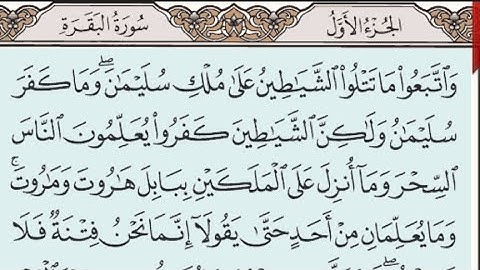 الجُزْءُ الأَوَّلُ سُورَةُ البَقَرَةِ
وَٱتَّبَعُواْ مَا تَتْلُواْ ٱلشَّيَٰطِينُ عَلَىٰ مُلْكِ سُلَيْمَٰنَۖ وَمَا كَفَرَ
سُلَيْمَٰنُ وَلَٰكِنَّ ٱلشَّيَٰطِينَ كَفَرُواْ يُعَلِّمُونَ ٱلنَّاسَ
ٱلسِّحْرَ وَمَآ أُنزِلَ عَلَى ٱلْمَلَكَيْنِ بِبَابِلَ هَٰرُوتَ وَمَٰرُوتَۚ
وَمَا يُعَلِّمَانِ مِنْ أَحَدٍ حَتَّىٰ يَقُولَآ إِنَّمَا نَحْنُ فِتْنَةٌ فَلَا